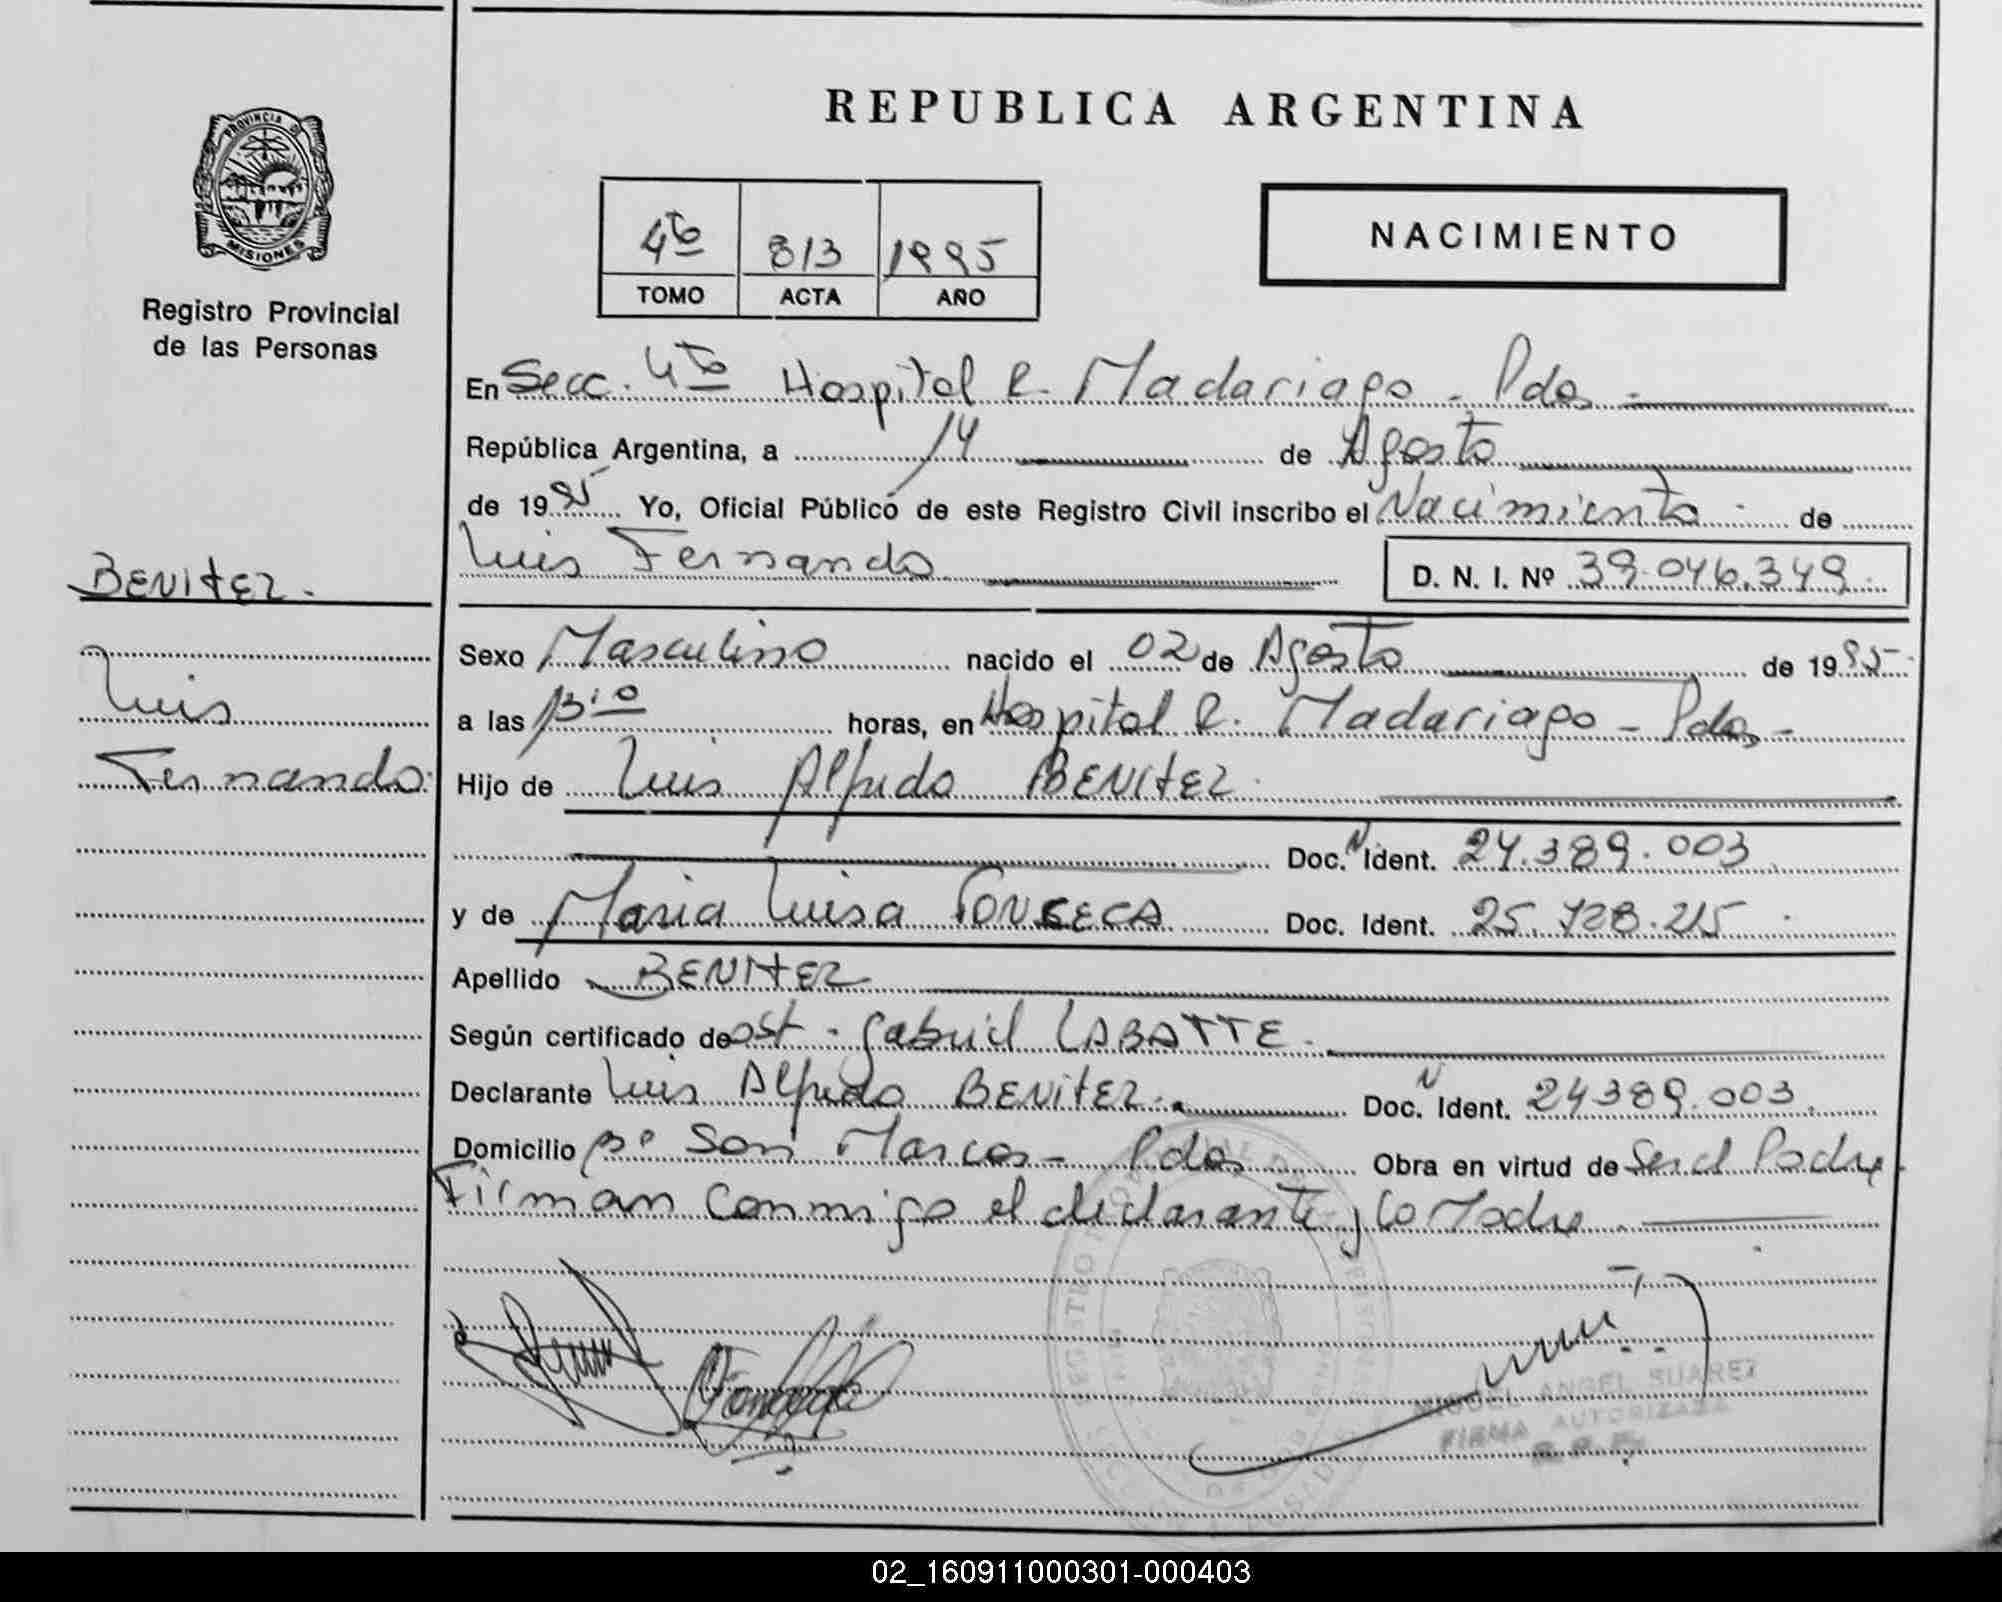 REPUBLICA ARGENTINA
PROVINCIA DE
MISIONES
Registro Provincial
de las Personas
4to 813 1995
TOMO ACTA AÑO
NACIMIENTO
En Secc. 4to Hospital R. Madariaga - Pdas -
República Argentina, a 14 de Agosto
de 1995 Yo, Oficial Público de este Registro Civil inscribo el Nacimiento de
Luis Fernando D. N. I. Nº 39.046.349.
BENITEZ.
Luis
Fernando
Sexo Masculino nacido el 02 de Agosto de 1995
a las 13:10 horas, en Hospital R. Madariaga - Pdas -
Hijo de Luis Alfredo BENITEZ
Doc. N Ident. 24.389.003
y de Maria Luisa FONSECA Doc. Ident. 25.728.215
Apellido BENITEZ
Según certificado de Ost. Gabriel LABATTE.
Declarante Luis Alfredo BENITEZ. Doc. N Ident. 24389.003.
Domicilio Bº San Marcos - Pdas Obra en virtud de Ser el Padre.
Firman conmigo el declarante y la Madre
MIGUEL ANGEL SUAREZ
FIRMA AUTORIZADA
02_160911000301-000403